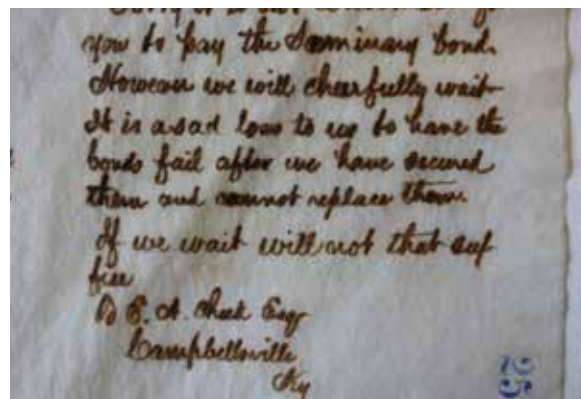 you to pay the Seminary bond.
However we will cheerfully wait
It is a sad loss to us to have the
bonds fail after we have secured
them and cannot replace them.
If we wait will not that suf
fice
E. A. Cheek Esqr
Campbellsville
Ky
25